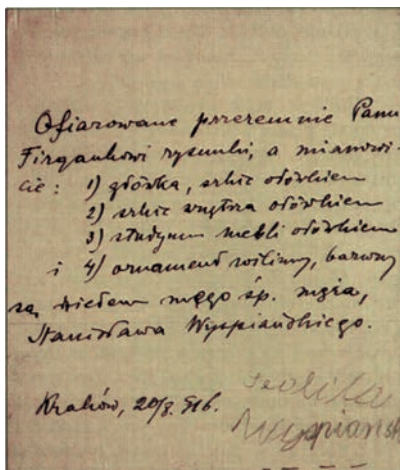 Ofiarowane przezemnie Panu
Firgankowi rysunki, a mianowi-
cie: 1) główka, szkic ołówkiem
2) szkic wnętrza ołówkiem
3) studyum mebli ołówkiem
i 4) ornament roślinny, barwny
są dziełem mego śp. męża,
Stanisława Wyspiańskiego.
Kraków, 20/8. 916.
Teofila
Wyspiańsk